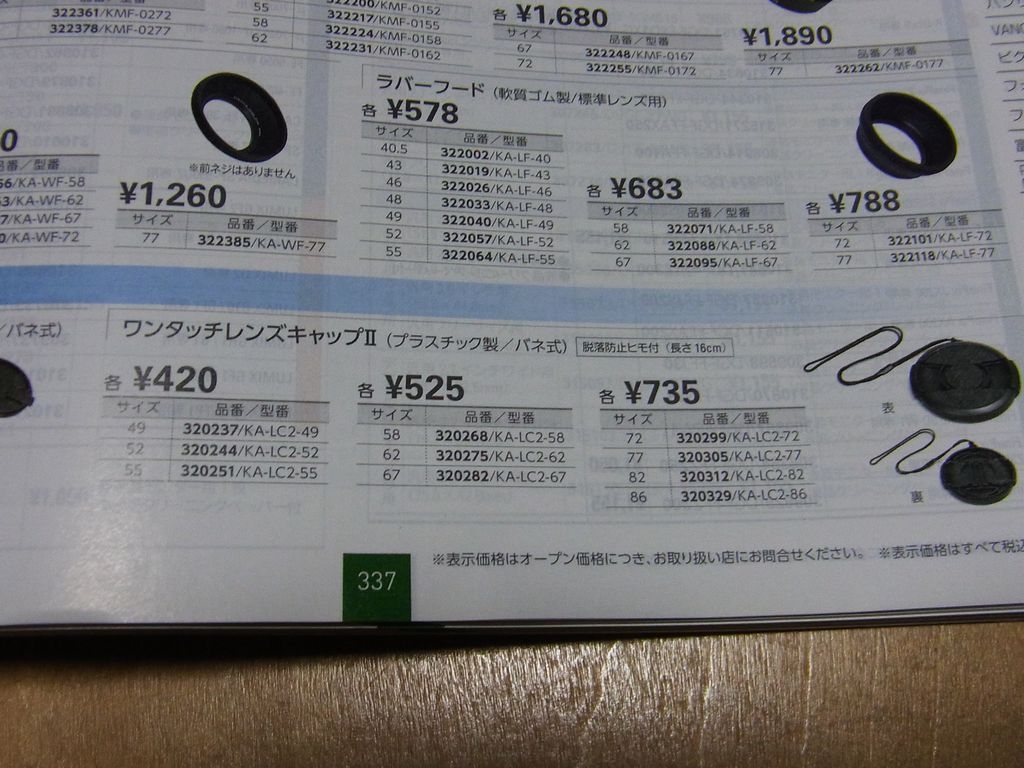 322361/KMF-0272
322378/KMF-0277
55 322200/KMF-0152
58 322217/KMF-0155
62 322224/KMF-0158
322231/KMF-0162
各 ¥1,680
サイズ 品番／型番
67 322248/KMF-0167
72 322255/KMF-0172
¥1,890
サイズ 品番／型番
77 322262/KMF-0177
※前ネジはありません
KA-WF-58
KA-WF-62
KA-WF-67
KA-WF-72
¥1,260
サイズ 品番／型番
77 322385/KA-WF-77
ラバーフード（軟質ゴム製/標準レンズ用）
各 ¥578
サイズ 品番／型番
40.5 322002/KA-LF-40
43 322019/KA-LF-43
46 322026/KA-LF-46
48 322033/KA-LF-48
49 322040/KA-LF-49
52 322057/KA-LF-52
55 322064/KA-LF-55
各 ¥683
サイズ 品番／型番
58 322071/KA-LF-58
62 322088/KA-LF-62
67 322095/KA-LF-67
各 ¥788
サイズ 品番／型番
72 322101/KA-LF-72
77 322118/KA-LF-77
／バネ式）
ワンタッチレンズキャップⅡ（プラスチック製／バネ式） 脱落防止ヒモ付（長さ16cm）
各 ¥420
サイズ 品番／型番
49 320237/KA-LC2-49
52 320244/KA-LC2-52
55 320251/KA-LC2-55
各 ¥525
サイズ 品番／型番
58 320268/KA-LC2-58
62 320275/KA-LC2-62
67 320282/KA-LC2-67
各 ¥735
サイズ 品番／型番
72 320299/KA-LC2-72
77 320305/KA-LC2-77
82 320312/KA-LC2-82
86 320329/KA-LC2-86
表
裏
※表示価格はオープン価格につき、お取り扱い店にお問合せください。 ※表示価格はすべて税込
337